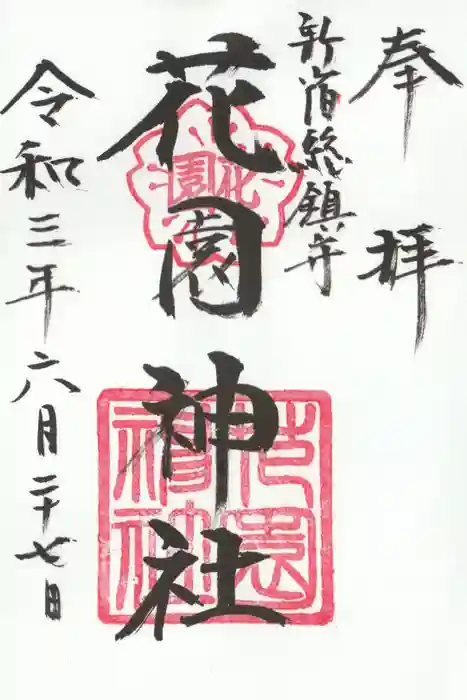 奉拝
新宿総鎮守
花園神社
花園
花園神社
令和三年六月二十七日